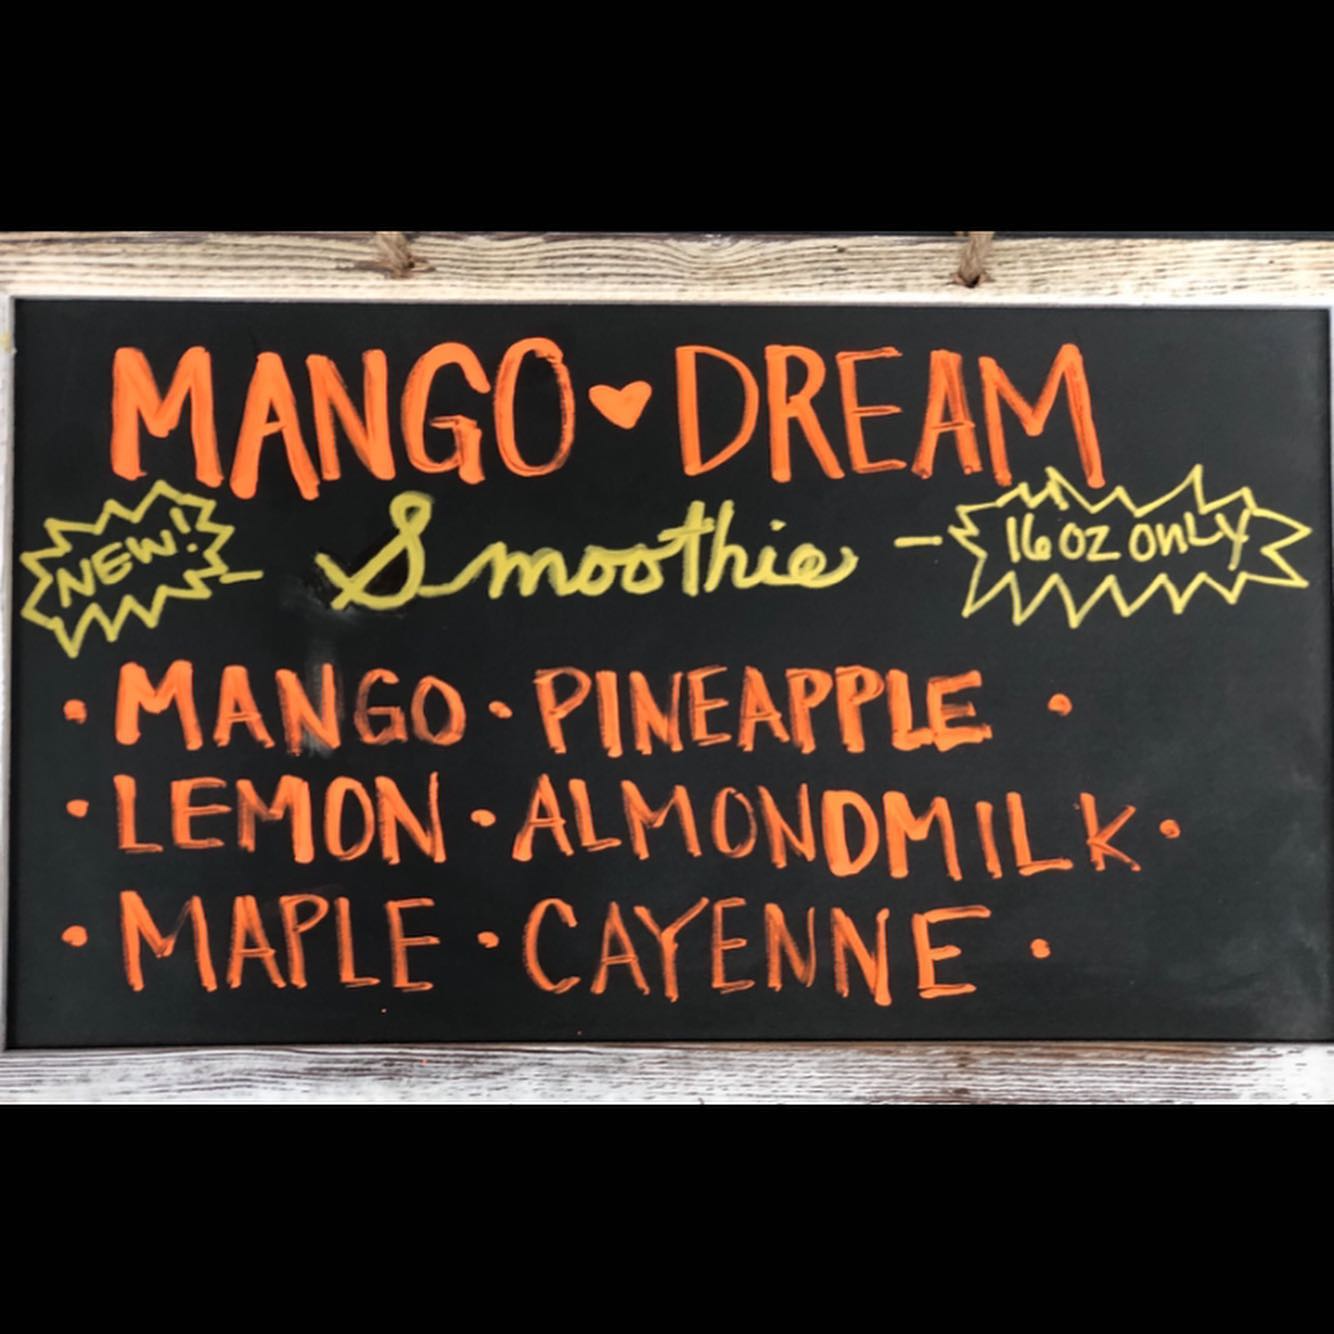 MANGO ♥ DREAM
NEW! - Smoothie - 16 oz ONLY
• MANGO • PINEAPPLE •
• LEMON • ALMONDMILK •
• MAPLE • CAYENNE •